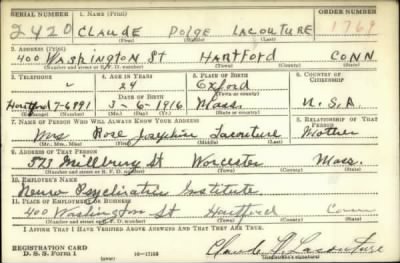 SERIAL NUMBER 1. NAME (Print) ORDER NUMBER
2420 CLAUDE DOLGE LACOUTURE 1769
(First) (Middle) (Last)
2. ADDRESS (Print)
400 WASHINGTON ST HARTFORD CONN
(Number and street or R. F. D. number) (Town) (County) (State)
3. TELEPHONE 4. AGE IN YEARS 5. PLACE OF BIRTH 6. COUNTRY OF CITIZENSHIP
24 Oxford
(Town or county)
DATE OF BIRTH
Hartford 7-6891 3-6-1916 Mass. U.S.A.
(Exchange) (Number) (Mo.) (Day) (Yr.) (State or country)
7. NAME OF PERSON WHO WILL ALWAYS KNOW YOUR ADDRESS 8. RELATIONSHIP OF THAT PERSON
Mrs Rose Josephine Lacouture Mother
(Mr., Mrs., Miss) (First) (Middle) (Last)
9. ADDRESS OF THAT PERSON
573 Millbury St Worcester Mass.
(Number and street or R. F. D. number) (Town) (County) (State)
10. EMPLOYER'S NAME
Neuro Psychiatric Institute
11. PLACE OF EMPLOYMENT OR BUSINESS
400 Washington St Hartford Conn
(Number and street or R. F. D. number) (Town) (County) (State)
I AFFIRM THAT I HAVE VERIFIED ABOVE ANSWERS AND THAT THEY ARE TRUE.
REGISTRATION CARD
D. S. S. Form 1
(over) 16-17105 Claude D. Lacouture
(Registrant's signature)